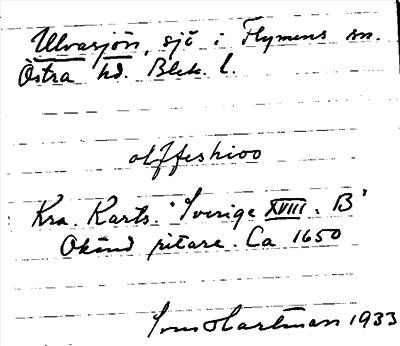 Ulvasjön, sjö i Flymens sn.
Östra hd. Blek. l.
olffeshioo
Kra. Karts. "Sverige XVIII. B"
Okänd ritare. Ca 1650
Hartman 1933